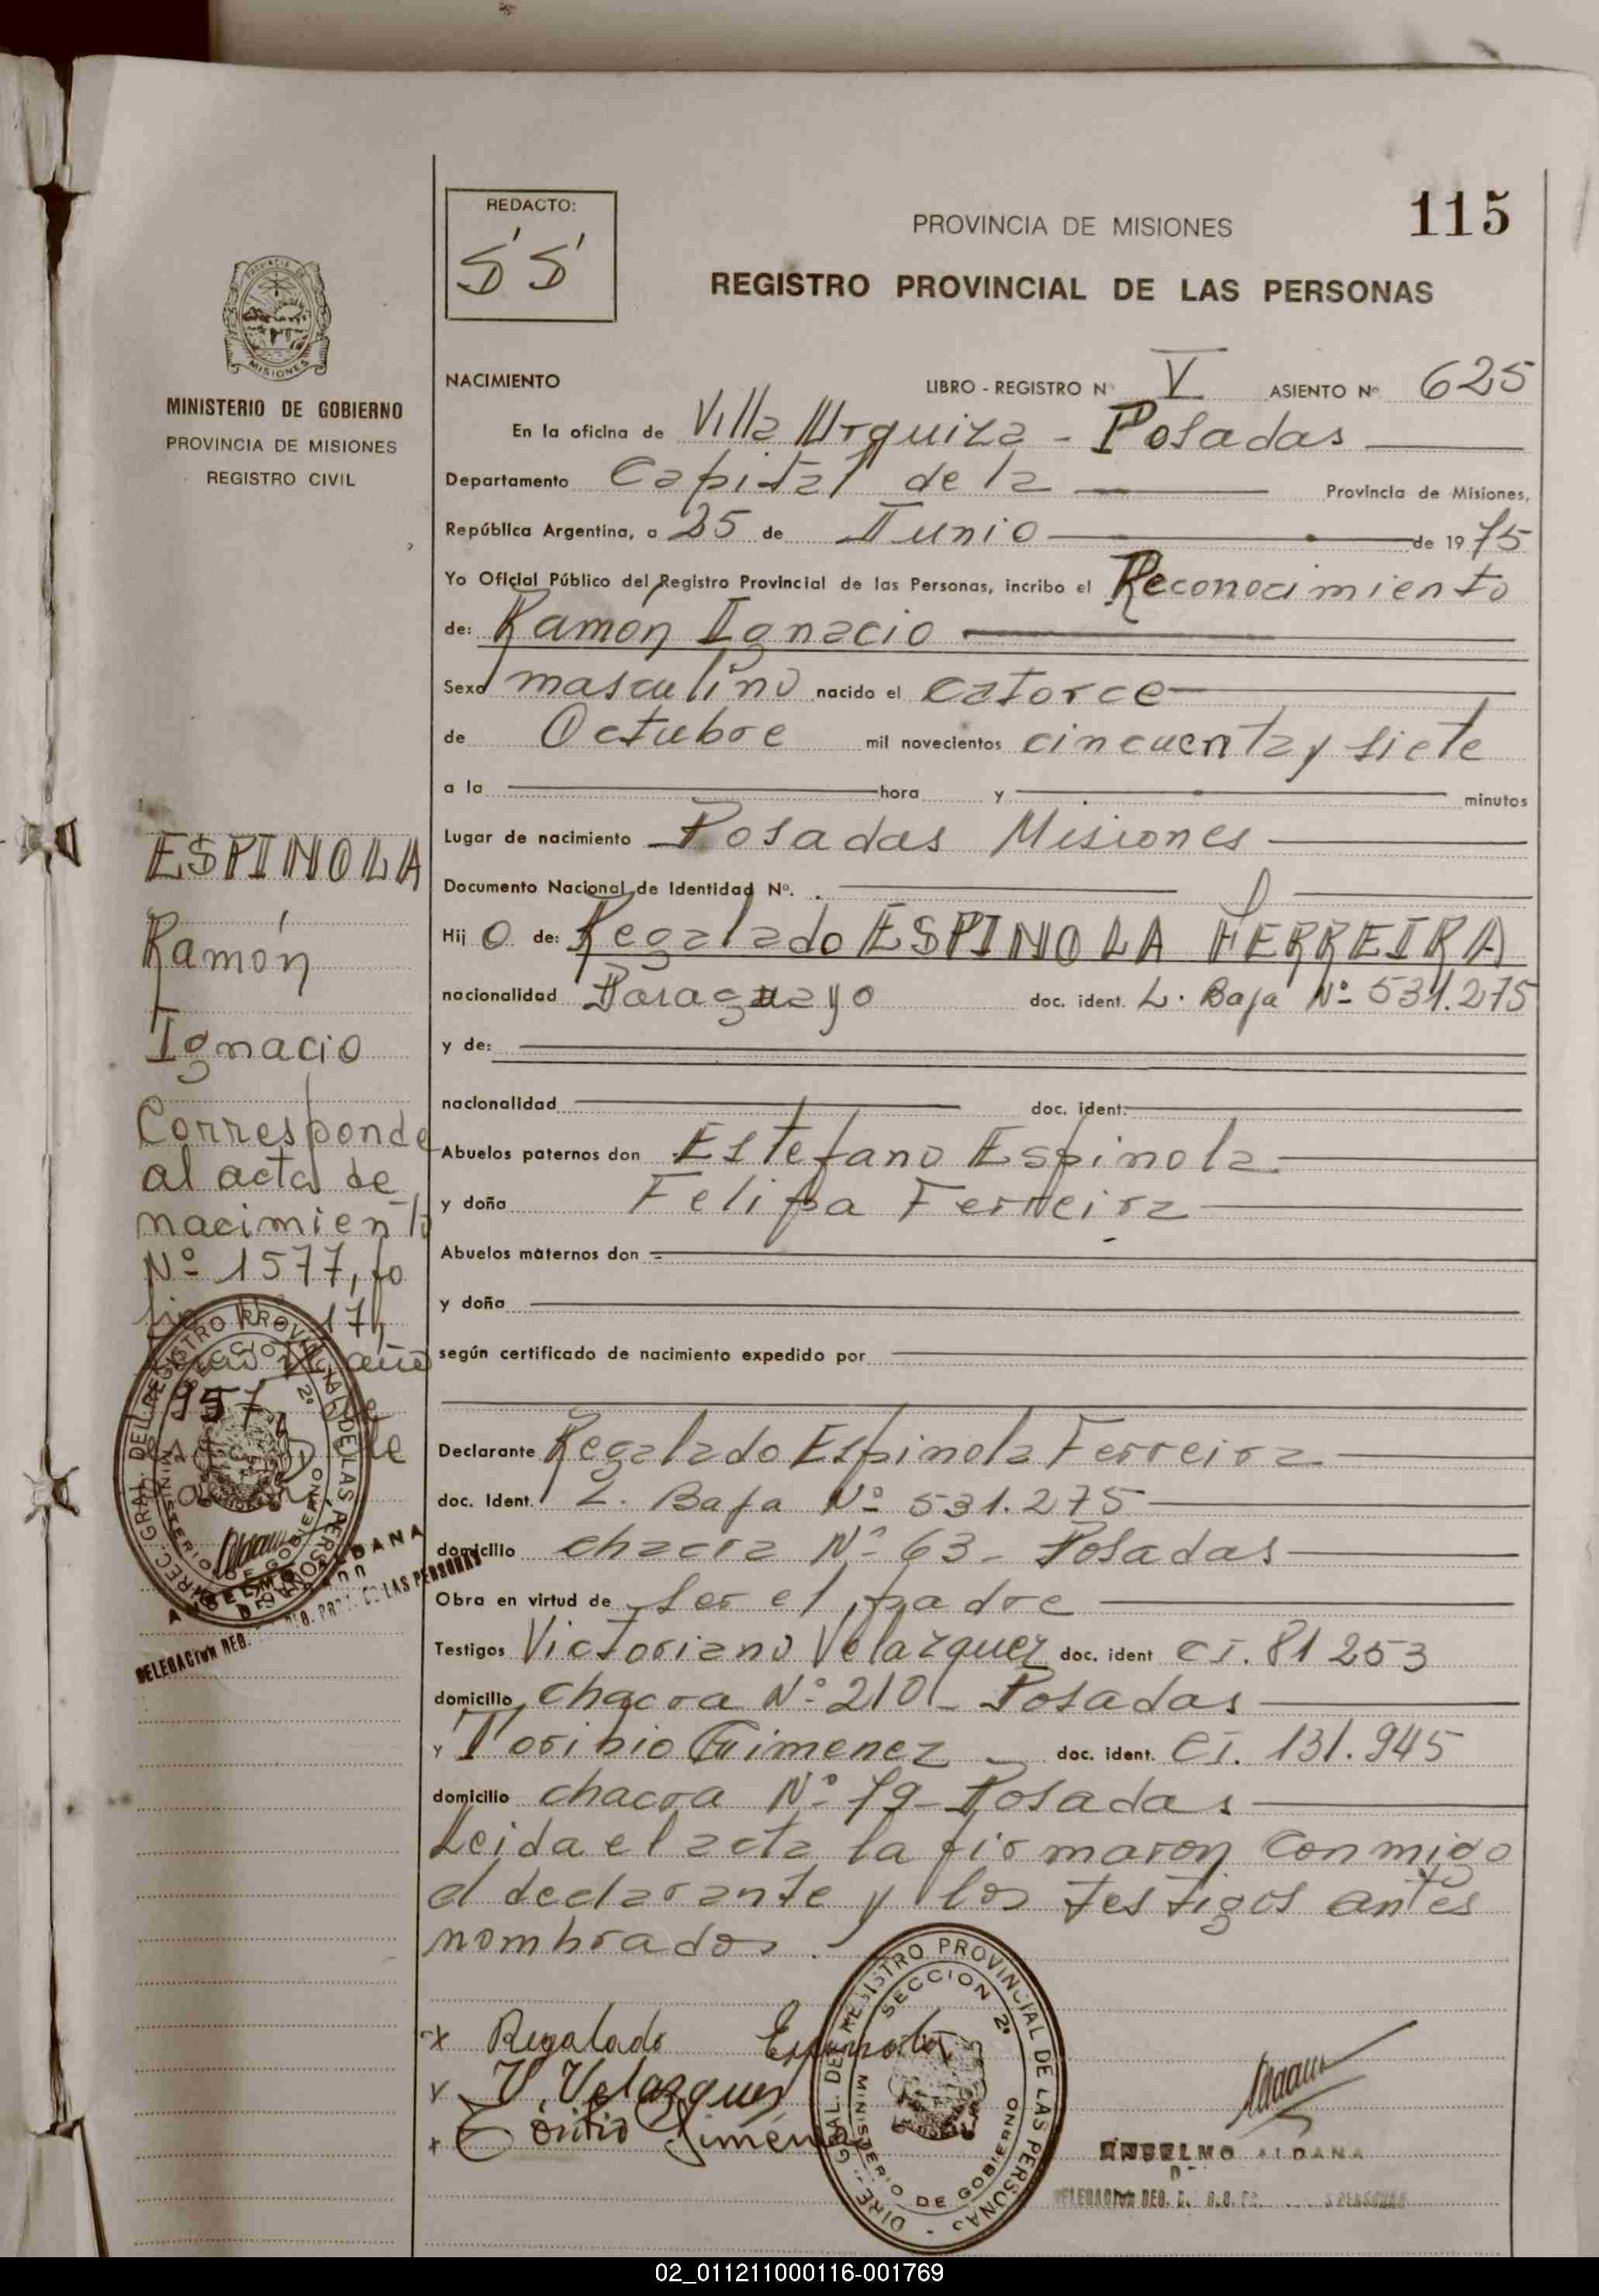 REDACTO:
S S
PROVINCIA DE MISIONES
115
REGISTRO PROVINCIAL DE LAS PERSONAS
MISIONES
MINISTERIO DE GOBIERNO
PROVINCIA DE MISIONES
REGISTRO CIVIL
NACIMIENTO LIBRO - REGISTRO Nº V ASIENTO Nº 625
En la oficina de Villa Urquiza - Posadas
Departamento Capital de la Provincia de Misiones,
República Argentina, a 25 de Junio de 1975
Yo Oficial Público del Registro Provincial de las Personas, incribo el Reconocimiento
de: Ramón Ignacio
Sexo masculino nacido el catorce
de Octubre mil novecientos cincuenta y siete
a la hora y minutos
Lugar de nacimiento Posadas Misiones
Documento Nacional de Identidad Nº.
Hij o de: Regalado ESPINOLA FERREIRA
nacionalidad Paraguayo doc. ident. L. Baja Nº 531.275
y de:
nacionalidad doc. ident.
Abuelos paternos don Estefano Espinola
y doña Felipa Ferreira
Abuelos maternos don
y doña
según certificado de nacimiento expedido por
Declarante Regalado Espinola Ferreira
doc. Ident. L. Baja Nº 531.275
domicilio chacra Nº 63 - Posadas
Obra en virtud de ser el padre
Testigos Victoriano Velazquez doc. ident CI. 81253
domicilio chacra Nº 210 - Posadas
y Toribio Gimenez doc. ident. CI. 131.945
domicilio chacra Nº 79 - Posadas
Leida el acta la firmaron conmigo
el declarante y los testigos antes
nombrados.
ESPINOLA
Ramón
Ignacio
Corresponde
al acta de
nacimiento
Nº 1577, fo
año
957
DIREC. GRAL. DEL REGISTRO PROVINCIAL DE LAS PERSONAS
SECCION 2º
MINISTERIO DE GOBIERNO
ANSELMO ALDANA
DELEGACION REG. LAS PERSONAS
x Regalado Espinola
x V. Velazquez
x Toribio Jimenez
DIREC. GRAL. DEL REGISTRO PROVINCIAL DE LAS PERSONAS
SECCION 2º
MINISTERIO DE GOBIERNO
ANSELMO ALDANA
DELEGACION REG.
02_011211000116-001769